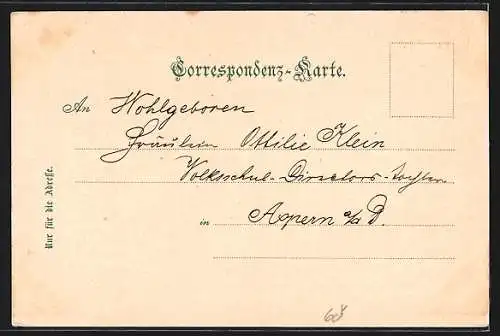 Correspondenz-Karte.
An Wohlgeboren
Fräulein Ottilie Klein
Volksschul-Directors-tochter
in Aspern a/d D.
Nur für die Adresse.